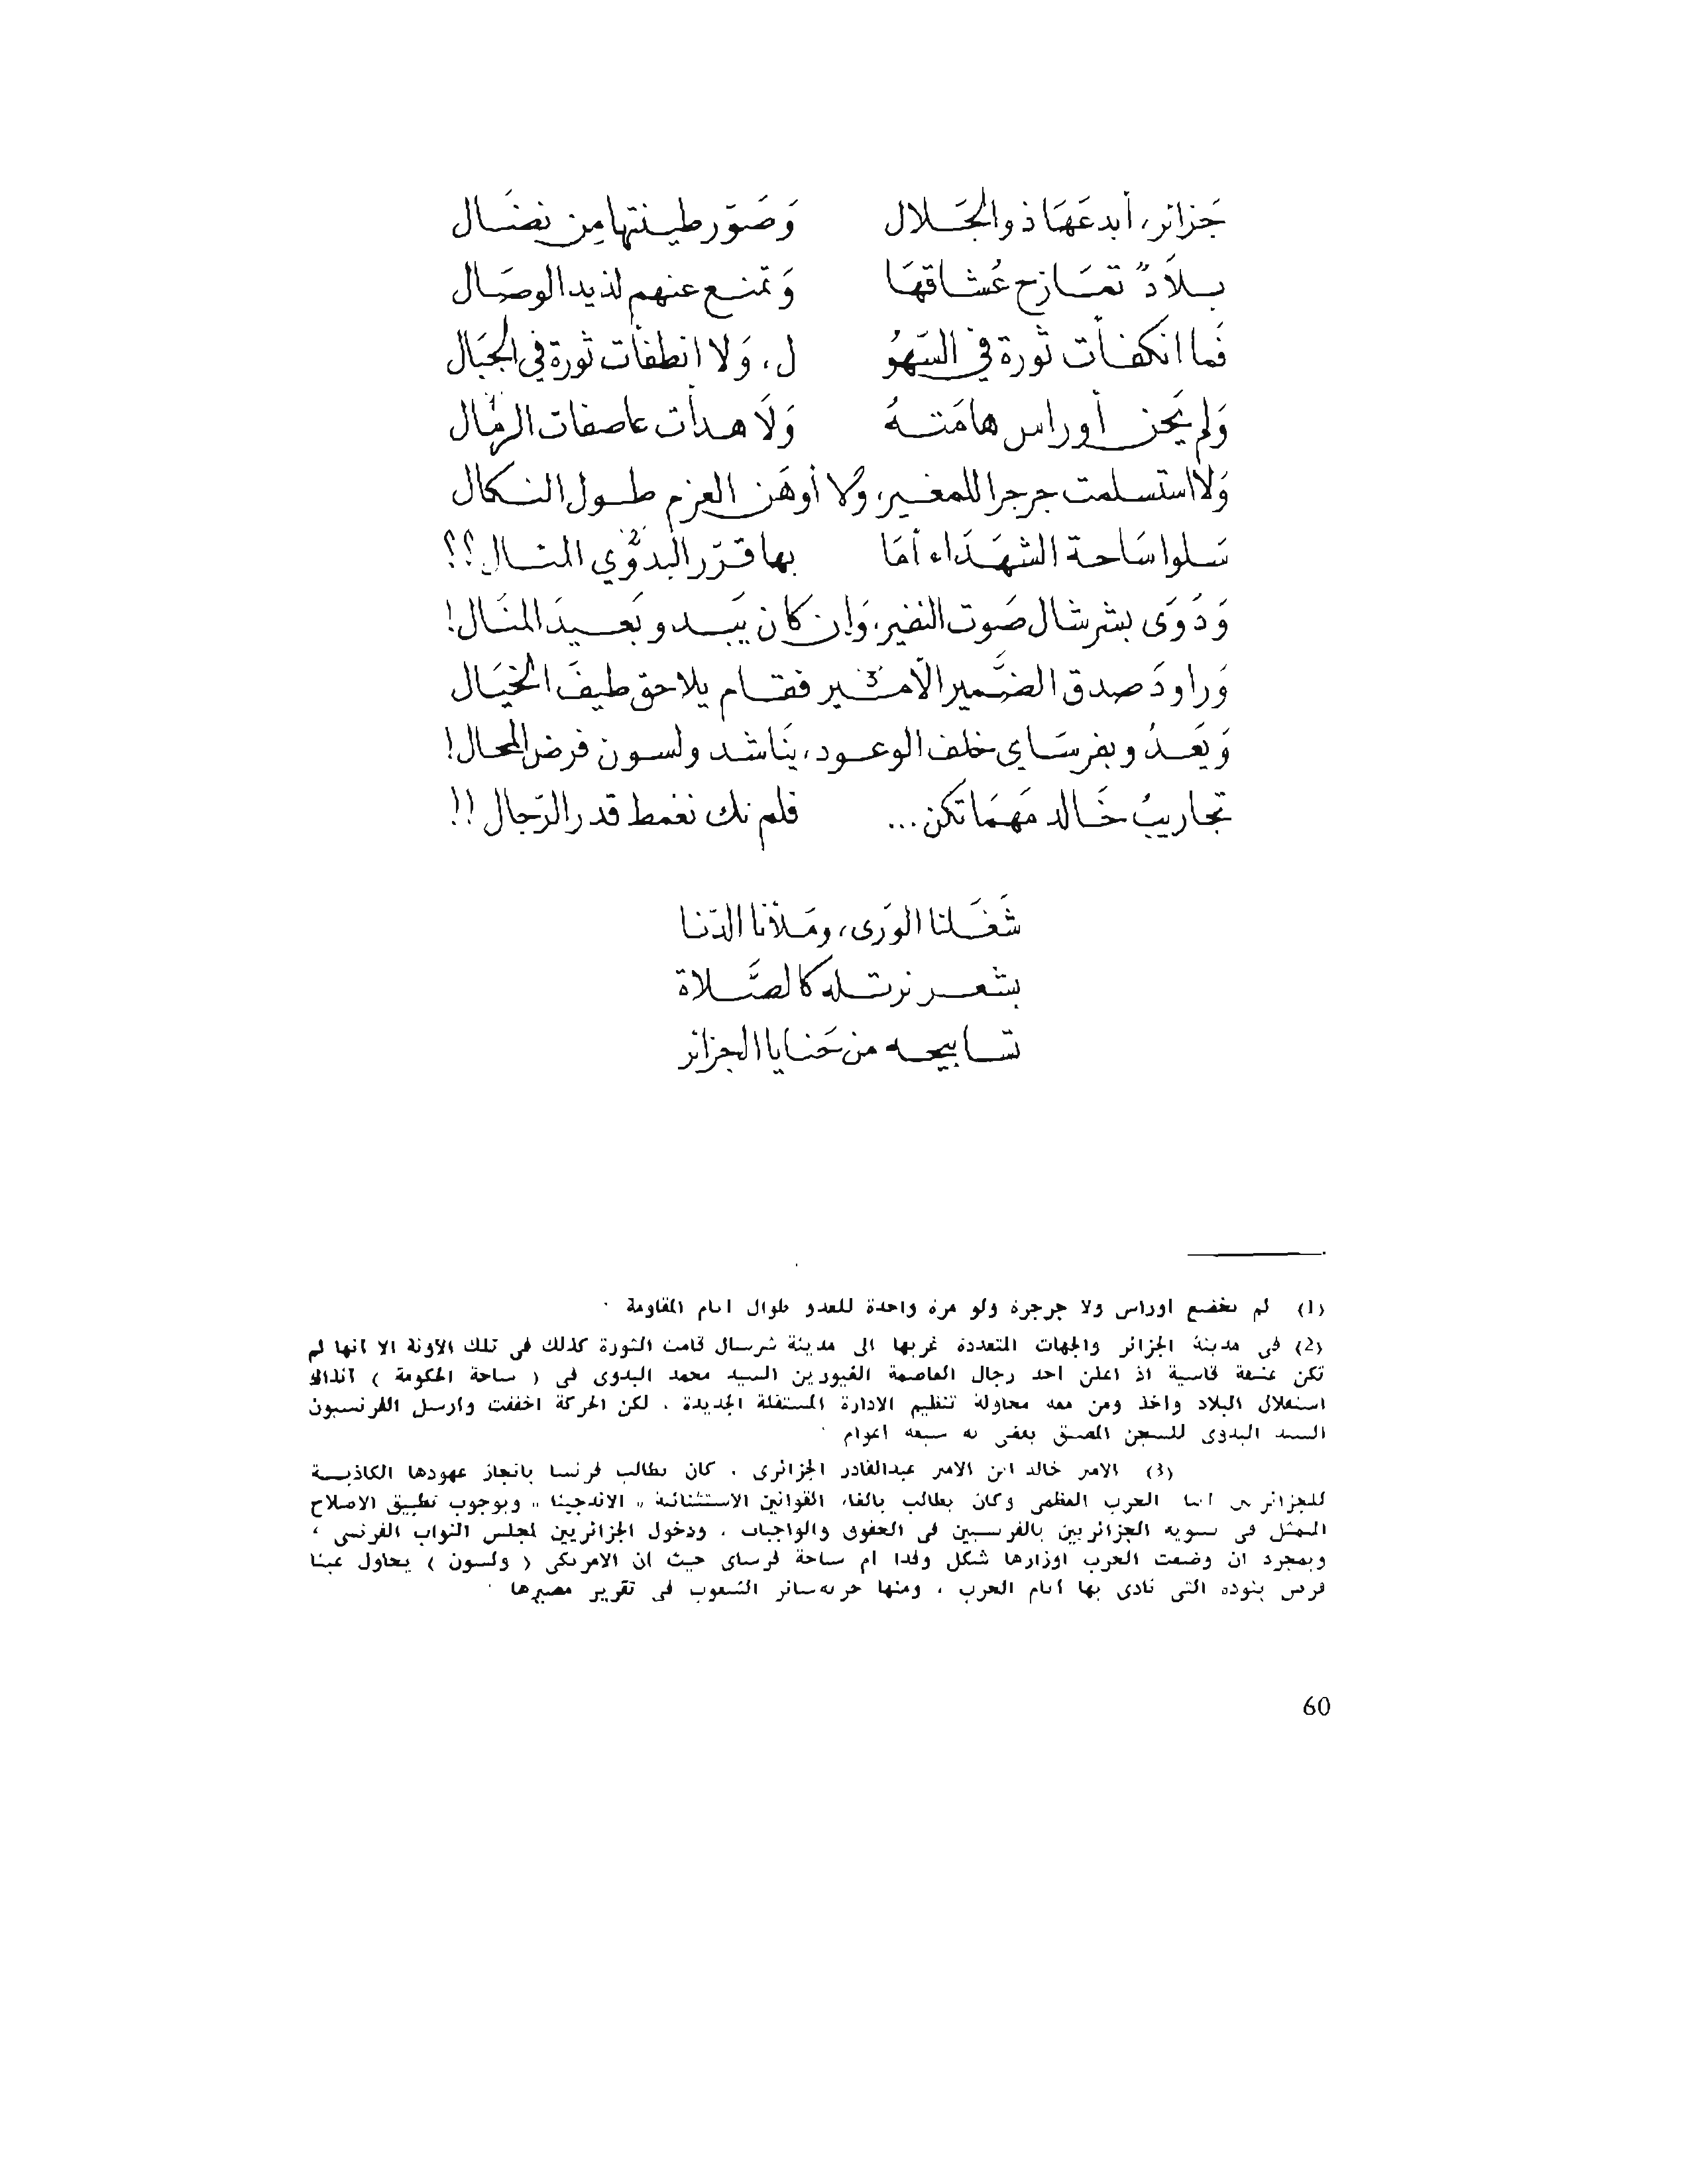 جَزائر، أبدعَهَا ذوالجَلال وَصَوّر طينتها مِن نضَال
بلاَدٌ تمَازح عُشاقهَا وَتمنع عنهم لذيذ الوصَال
فَما انكفأت ثورة في السّهوُ ل، وَلا انطفأت ثورة في الجبَال
وَلم يَحن أوراس هامَتهُ وَلَا هدأت عاصفات الرمَال (1)
وَلا استسلمت جرجرا للمغير، وَلا أوهَن العزم طول النكال
سَلوا سَاحة الشهَدَاء أمَا بها قرّر البدوي (2) المثال ؟؟
وَدَوَى بشرشال صَوت النفير، وَإن كان يَبدو بَعيدَ المنَال!
وَراودَ صدق الضَّمير الأمير (3) فقام يلاحق طيفَ الخيَال
وَيَعدُو بفرسَاي خلف الوعود، ينَاشد ولسون فرض المحال!
تجاريبُ خَالد مَهمَا تكن... فلم نك نغمط قدر الرّجال !!
شَغَلنا الوَرى، ومَلأنا الدّنا
بشعر نرتله كالصَّلاة
تسابيحه من حَنايا الجزائر
(1) لم تخضع اوراس ولا جرجرة ولو مرة واحدة للعدو طوال ايام المقاومة .
(2) فى مدينة الجزائر والجهات المتعددة غربها الى مدينة شرسال قامت الثورة كذلك فى تلك الآونة الا انها لم
تكن عنيفة قاسية اذ اعلن احد رجال العاصمة الغيورين السيد محمد البدوى فى ( ساحة الحكومة ) آنذاك
استقلال البلاد واخذ ومن معه محاولة تنظيم الادارة المستقلة الجديدة . لكن الحركة اخفقت وارسل الفرنسيون
السيد البدوى للسجن الضيق يقضى به سبعة اعوام .
(3) الامير خالد ابن الامير عبدالقادر الجزائرى . كان يطالب فرنسا بانجاز عهودها الكاذبة
للجزائر فى اثنا الحرب العظمى وكان يطالب بالغاء القوانين الاستثنائية „ الاندجينا „ وبوجوب تطبيق الاصلاح
الممثل فى تسوية الجزائريين بالفرنسيين فى الحقوق والواجبات . ودخول الجزائريين لمجلس النواب الفرنسى ،
وبمجرد ان وضعت الحرب اوزارها شكل وفدا ام ساحة فرساى حيث ان الامريكى ( ولسون ) يحاول عبثا
فرض بنوده التى نادى بها ايام الحرب ، ومنها حرية سائر الشعوب فى تقرير مصيرها .
60